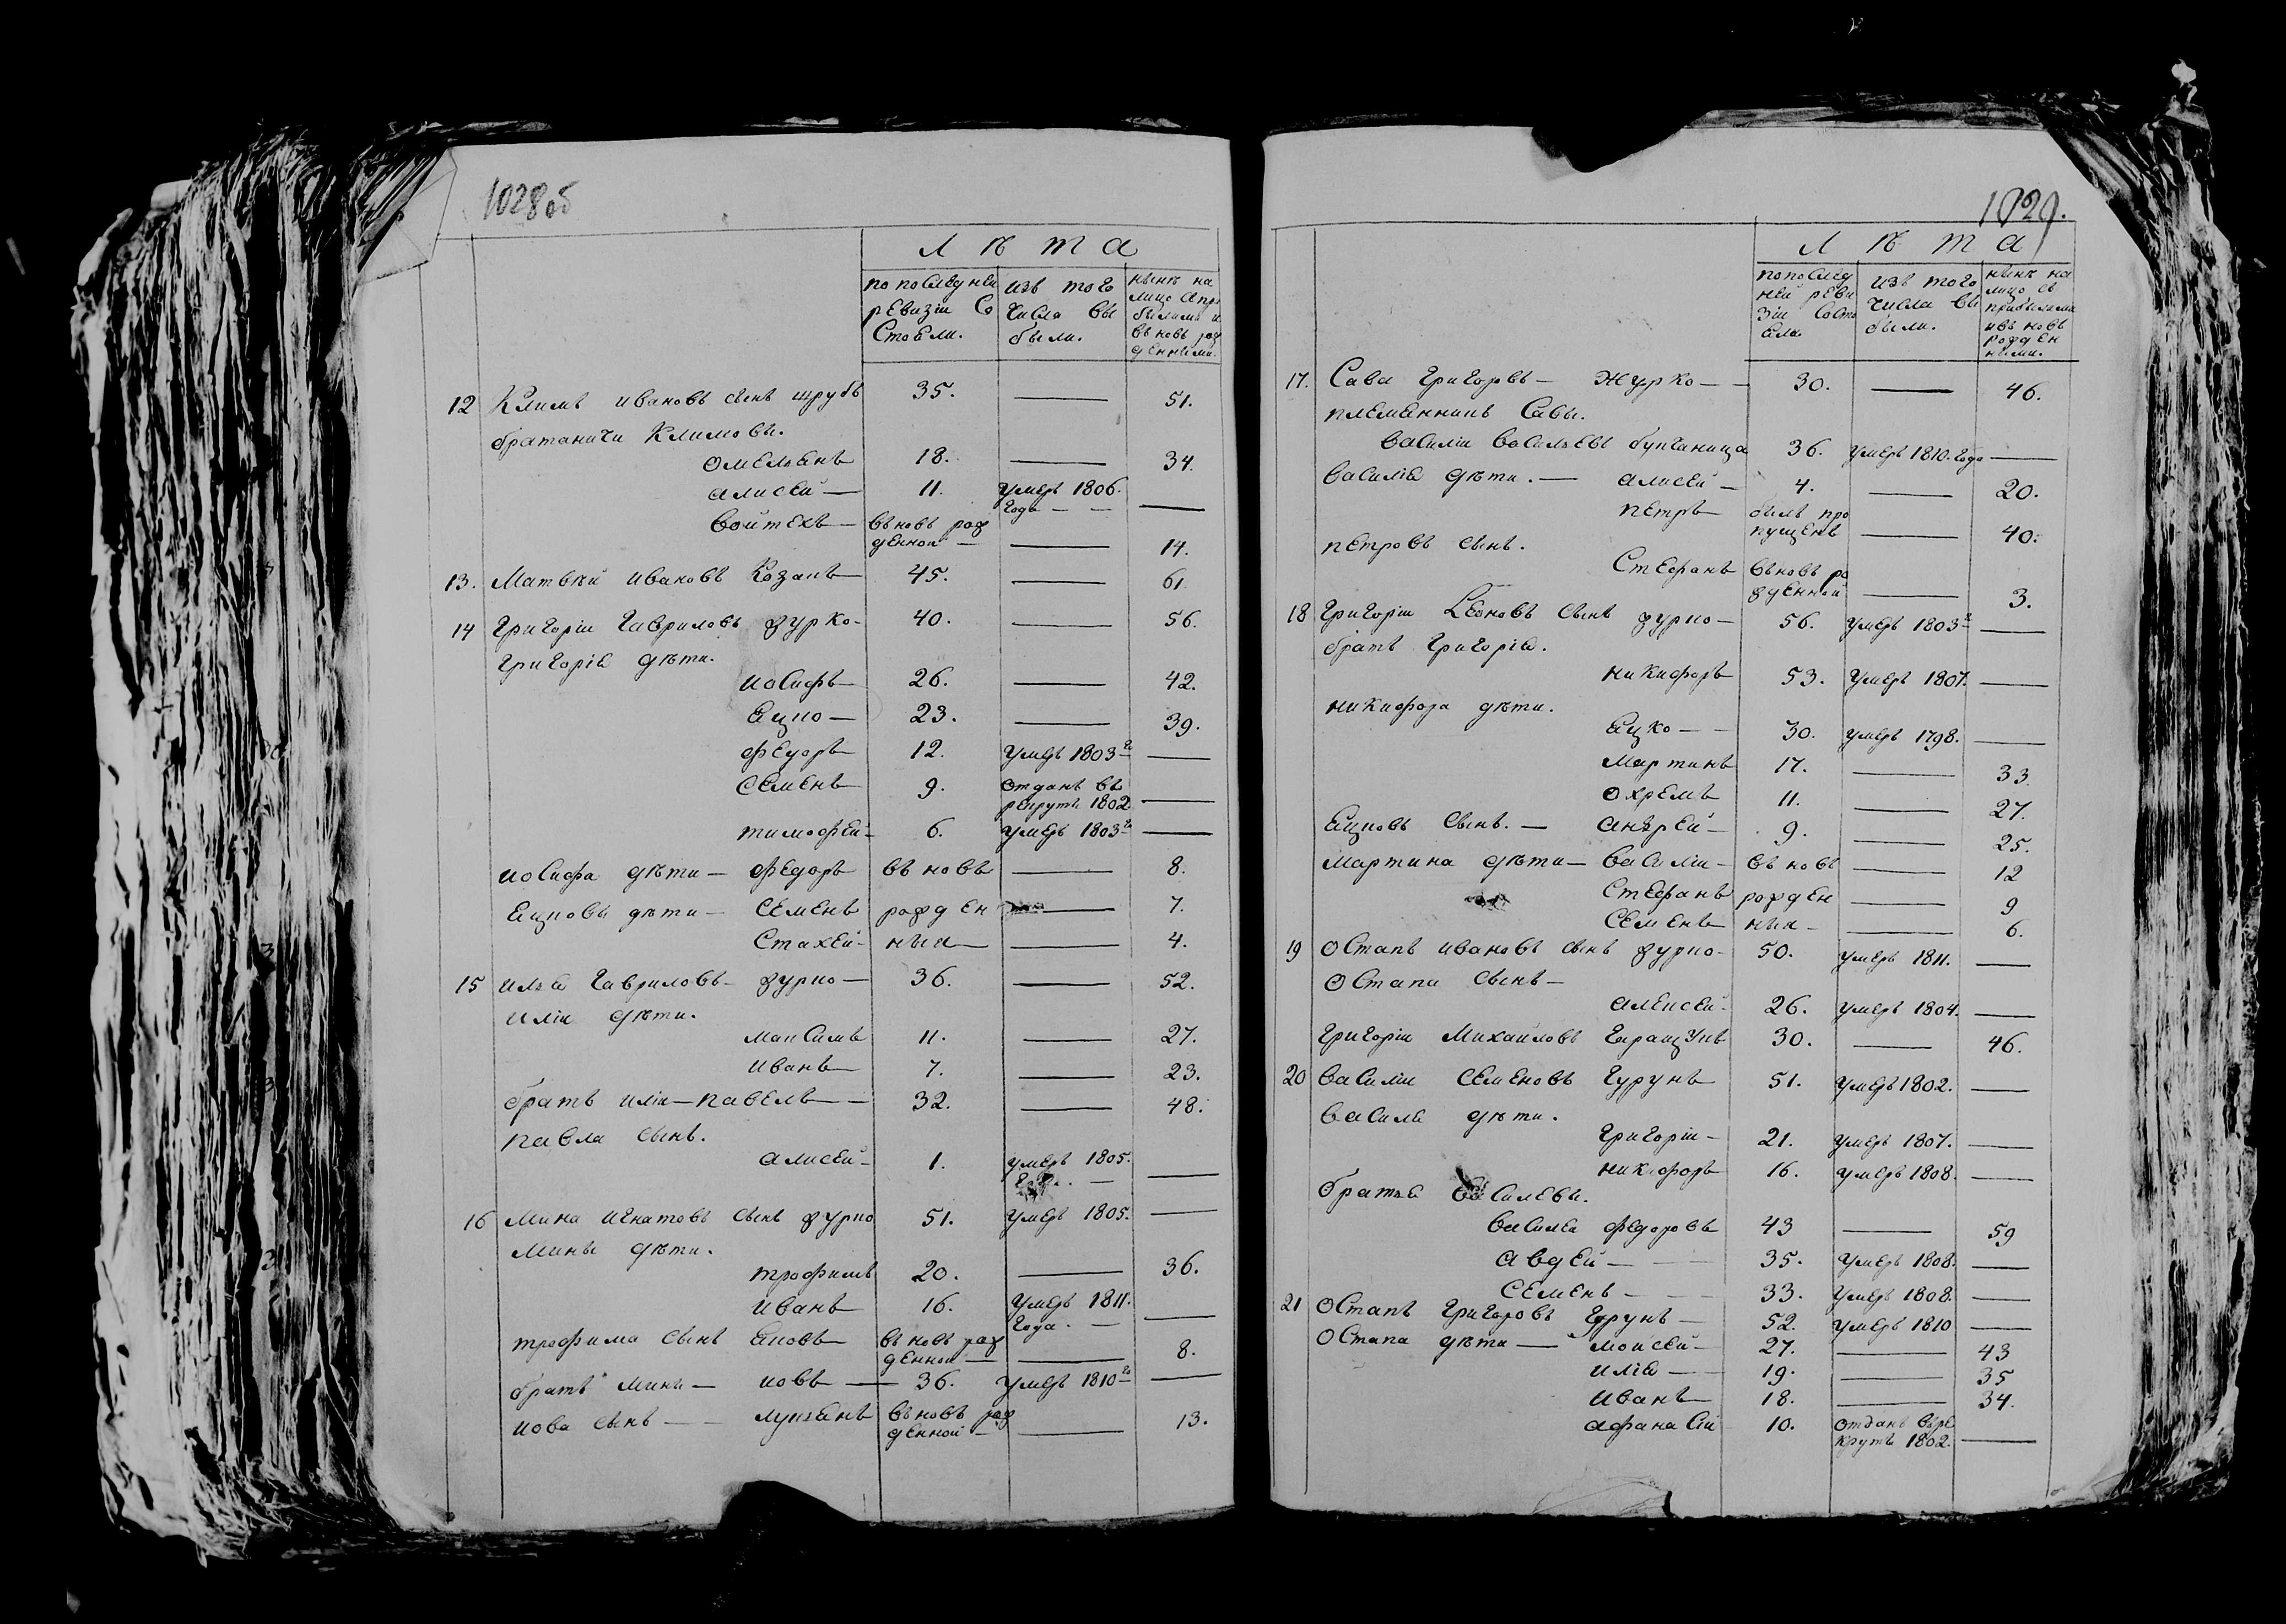 1028об
Лѣта
по последней ревизіи состояли.
изъ того числа выбыли.
нынѣ на лицо с прибылыми и вновь рожденными.
12 Климъ ивановъ сынъ шрубъ 35. — 51.
братаничи Климовы.
омельянъ 18. — 34.
алисей — 11. умеръ 1806. года — —
войтехъ — вновь рожденной — — 14.
13. Матвѣй ивановъ Козакъ — 45. — 61.
14 Григоріи Гавриловъ журко — 40. — 56.
Григорія дѣти.
иосифъ — 26. — 42.
яцко — 23. — 39.
федоръ 12. умеръ 1803 го —
семенъ 9. отданъ въ рекруты 1802 —
тимофей — 6. умеръ 1803 го —
иосифа дѣти — федоръ вновь — 8.
яцковы дѣти — семенъ рожден — 7.
стахей — ныя — — 4.
15 илья Гавриловъ — журко — 36. — 52.
иліи дѣти.
максимъ 11. — 27.
иванъ — 7. — 23.
братъ иліи — павелъ — 32. — 48.
павла сынъ.
алисей — 1. умеръ 1805. —
16 Мина игнатовъ сынъ журко 51. умеръ 1805. —
Мины дѣти.
трофимъ 20. — 36.
иванъ 16. умеръ 1811. года. — —
трофима сынъ яковъ — вновь рожденной — — 8.
братъ мины — иовъ — 36. умеръ 1810 го —
иова сынъ — лукьянъ вновь рожденной — — 13.
1029.
Лѣта
по последней ревизіи состояла
изъ того числа выбыли.
нынѣ на лицо съ прибылыми и вновь рожденными.
17. Сава Григоровъ — журко — 30. — 46.
племенникъ Савы.
василіи васильевъ 36. умеръ 1810. года —
василія дѣти. — алисей — 4. — 20.
петръ былъ пропущенъ — 40.
петровъ сынъ.
Стефанъ вновь рожденной — 3.
18 Григоріи Леоновъ сынъ журко — 56. умеръ 1803 г —
братъ Григорія.
никифоръ 53. умеръ 1807. —
никифора дѣти.
яцко — 30. умеръ 1798. —
мартинъ 17. — 33.
охремъ 11. — 27.
яцковъ сынъ. — андрей — 9. — 25.
мартина дѣти — василіи — вновь — 12
Стефанъ рожден — 9
семенъ ныя — — 6.
19 Остапъ ивановъ сынъ журко — 50. умеръ 1811. —
Остапа сынъ —
алексей — 26. умеръ 1804. —
Григоріи Михайловъ 30. — 46.
20 василіи семеновъ гурунъ 51. умеръ 1802. —
василя дѣти.
григоріи — 21. умеръ 1807. —
никифоръ 16. умеръ 1808. —
братья василевы.
василеи федоровъ 43 — 59
авдей — 35. умеръ 1808. —
семенъ — 33. умеръ 1808. —
21 Остапъ григоровъ гурунъ — 52. умеръ 1810 —
Остапа дѣти — моисей — 27. — 43
илія — 19. — 35
иванъ — 18. — 34.
афанасіи 10. отданъ в рекруты 1802. —